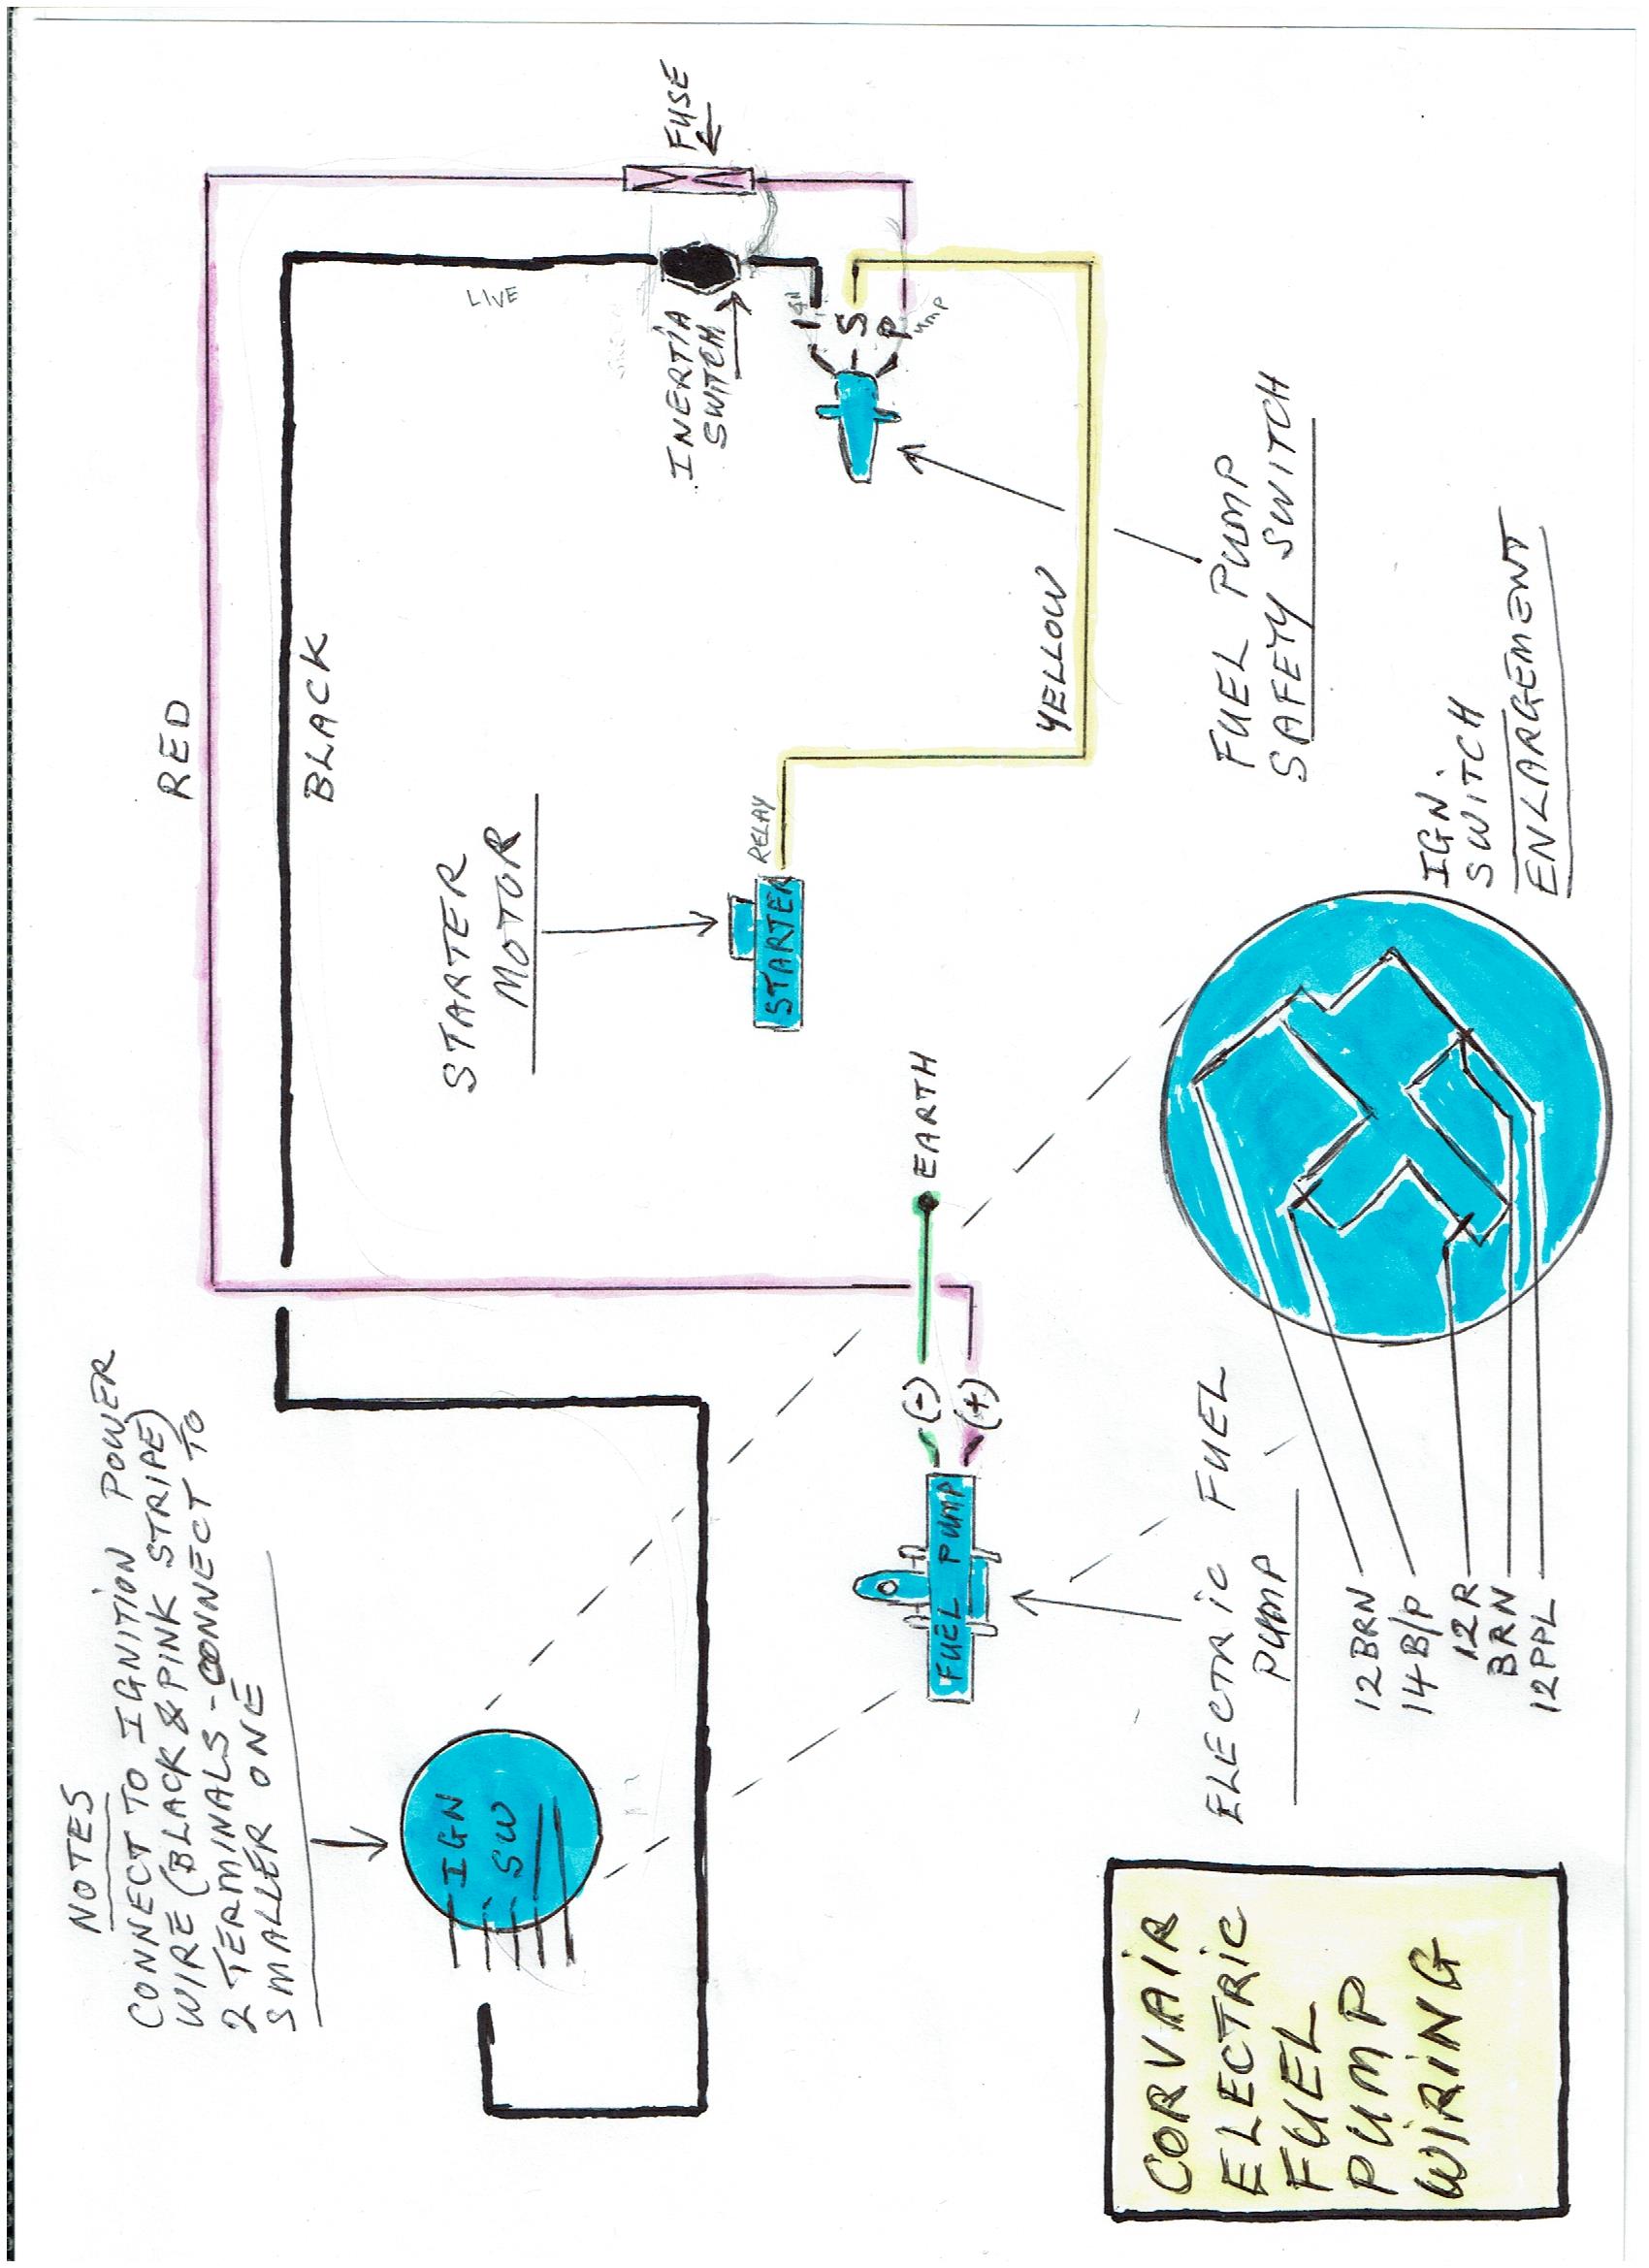 NOTES
CONNECT TO IGNITION POWER
WIRE (BLACK & PINK STRIPE)
2 TERMINALS - CONNECT TO
SMALLER ONE
IGN
SW
RED
BLACK
LIVE
FUSE
INERTIA
SWITCH
STARTER
MOTOR
RELAY
STARTER
IGN
S
PUMP
YELLOW
EARTH
(-)
(+)
FUEL PUMP
FUEL PUMP
SAFETY SWITCH
ELECTRIC FUEL
PUMP
IGN.
SWITCH
ENLARGEMENT
12BRN
14B/P
12R
BRN
12PPL
CORVAIR
ELECTRIC
FUEL
PUMP
WIRING